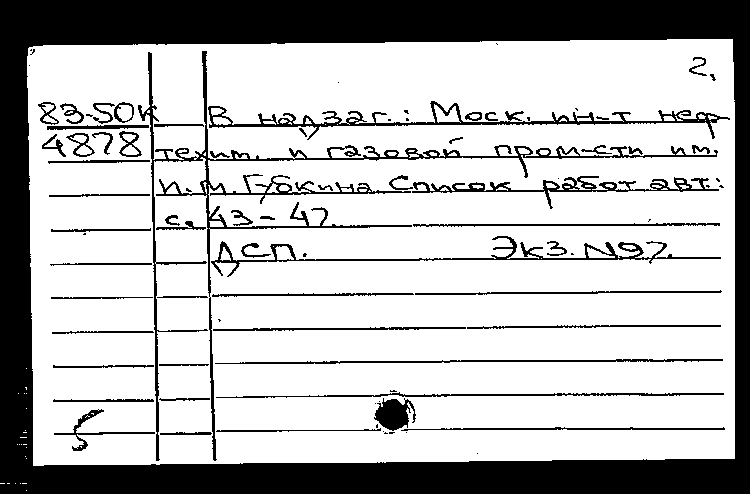 2.
83-50К В надзаг.: Моск. ин-т неф-
4878 техим. и газовой пром-сти им.
И. М. Губкина Список работ авт.:
с. 43-47.
ДСП. Экз. N97.
5